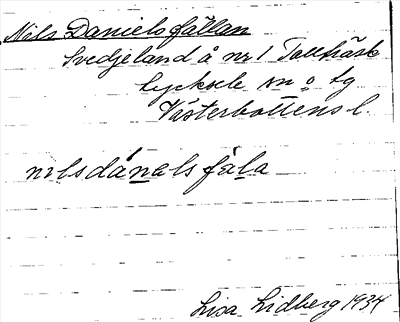 Nils Danielsfällan
Svedjeland å nr 1 Tallträsk
Lycksele sn o. tg
Västerbottens l.
nılsdánalsfála
Lisa Lidberg 1934